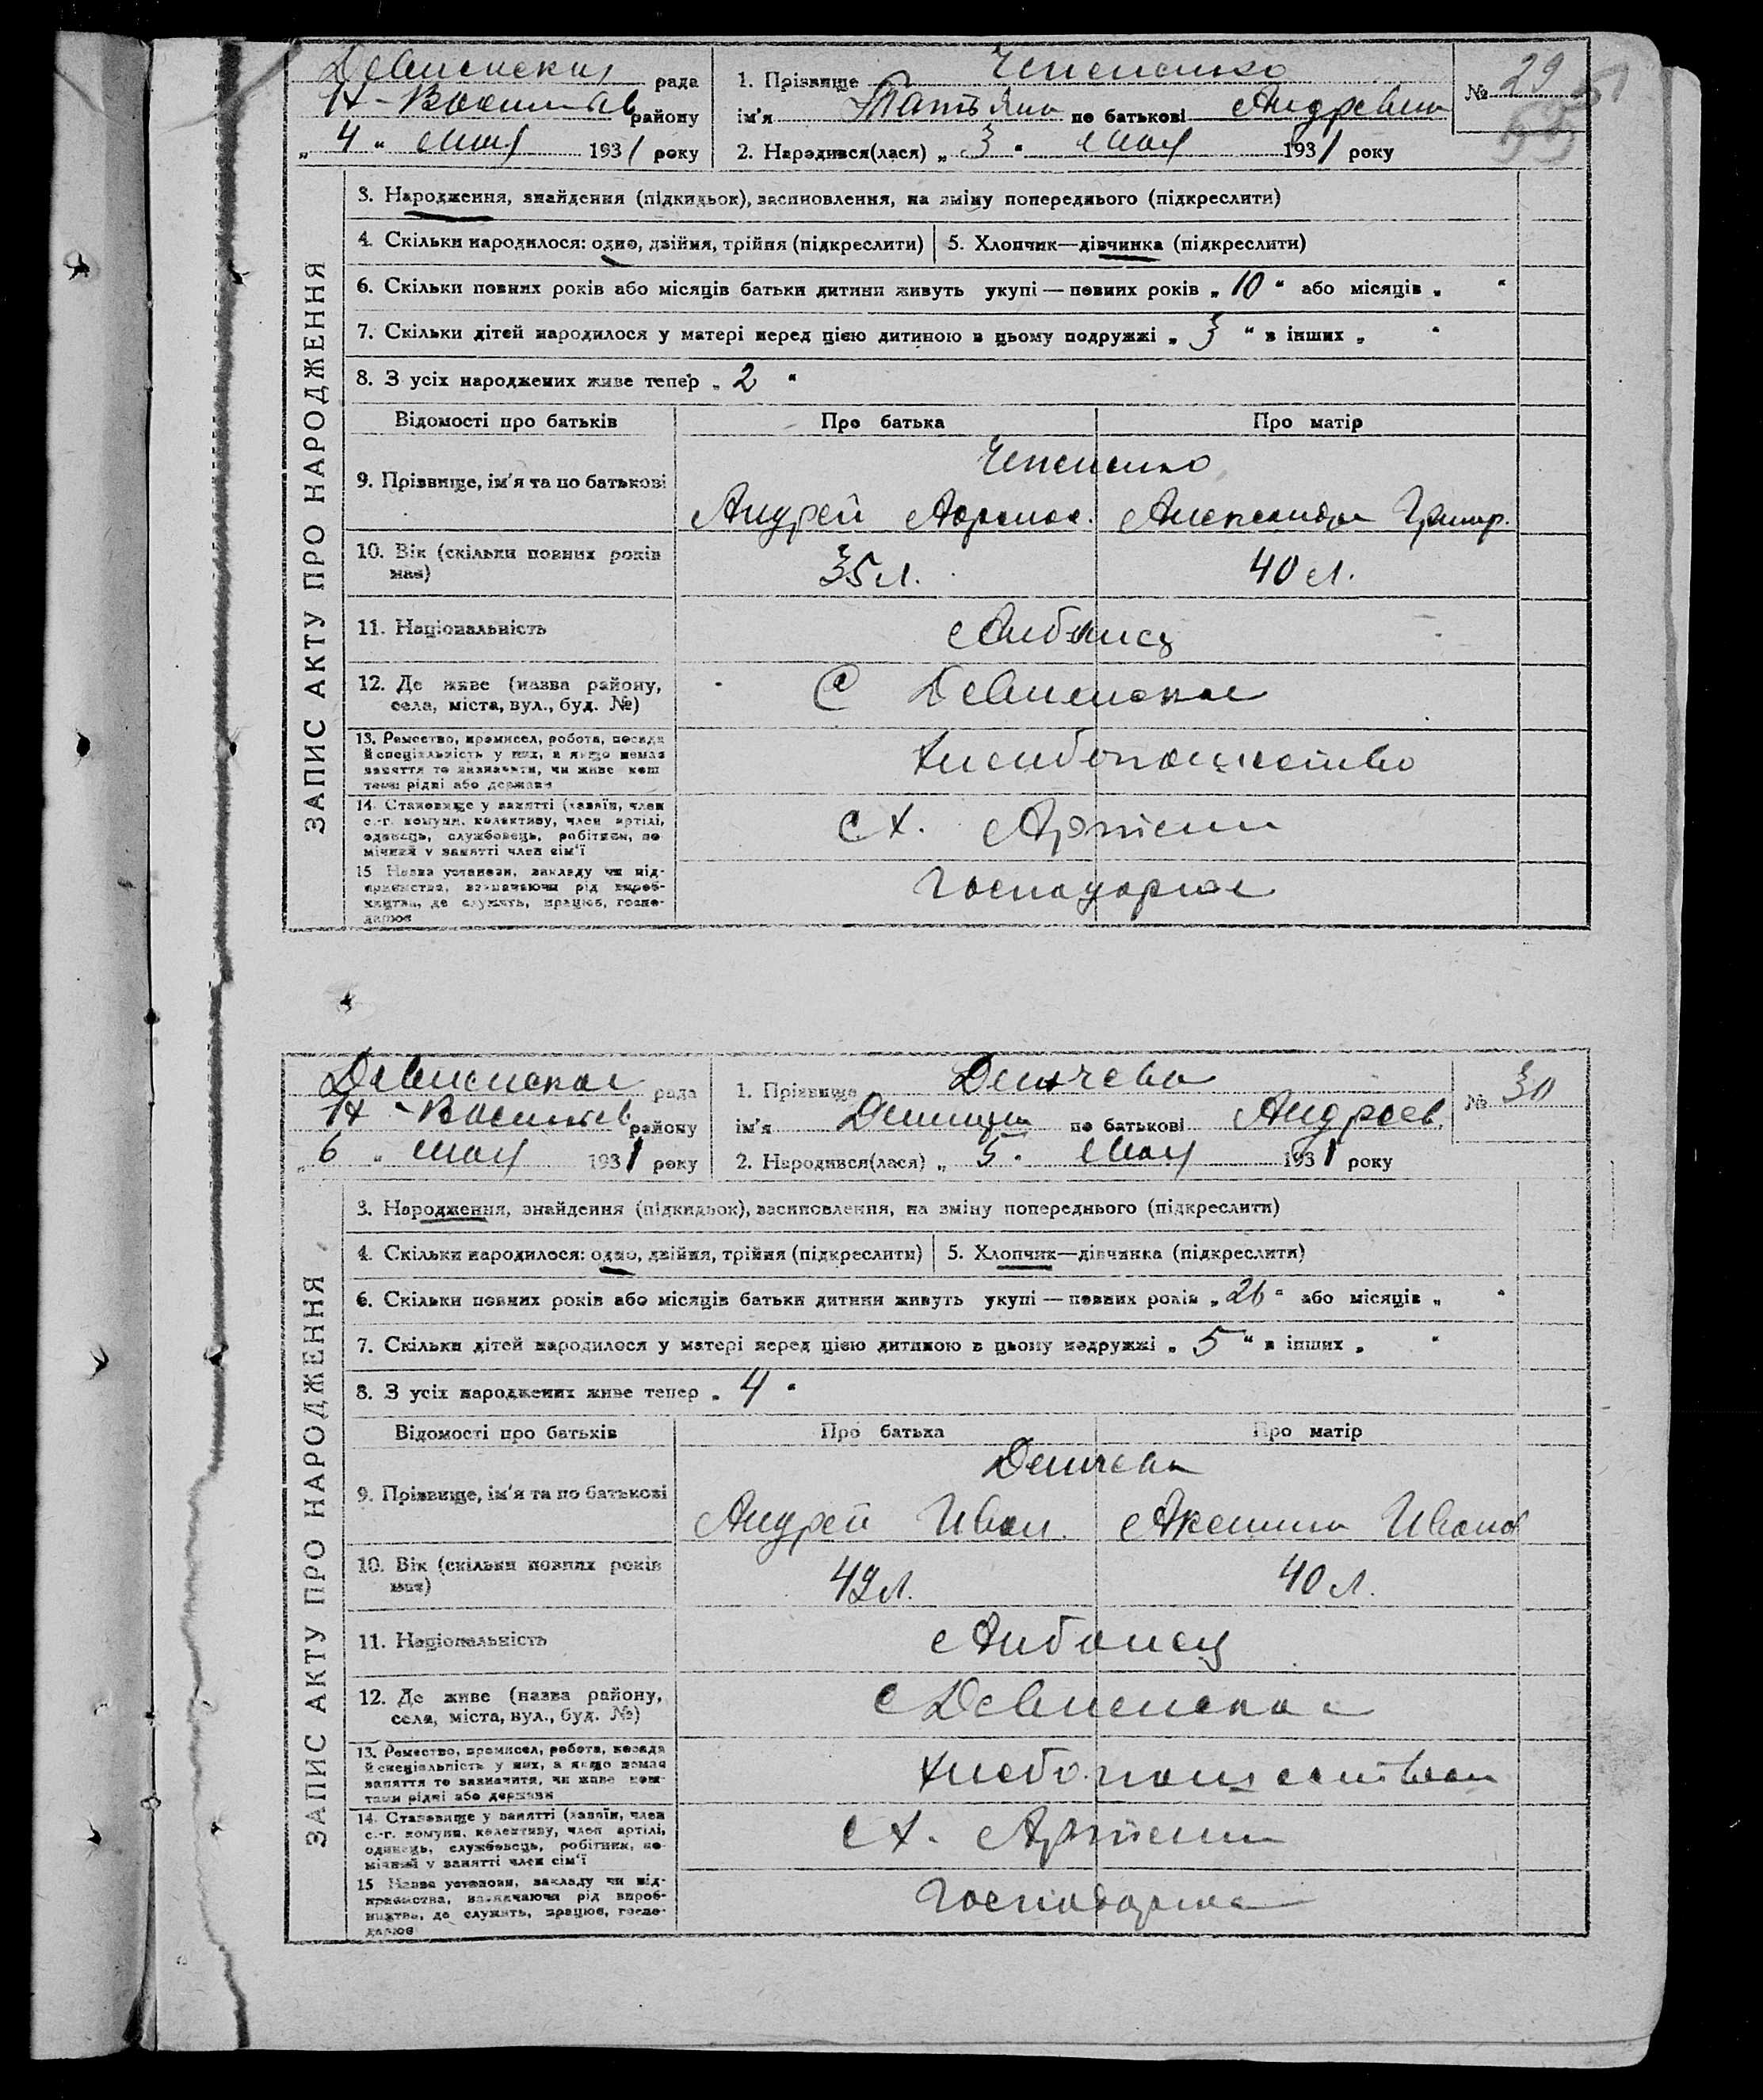 Девнинская рада
Н-Васильев району
„ 4 “ мая 1931 року
1. Прізвище
ім'я Татьяна по батькові Андревна
2. Народився(лася) „ 3 “ мая 1931 року
№ 29
55
ЗАПИС АКТУ ПРО НАРОДЖЕННЯ
3. Народження, знайдення (підкидьок), засиновлення, на зміну попереднього (підкреслити)
4. Скільки народилося: одно, двійня, трійня (підкреслити)
5. Хлопчик—дівчинка (підкреслити)
6. Скільки повних років або місяців батьки дитини живуть укупі — повних років „ 10 “ або місяців „ “
7. Скільки дітей народилося у матері перед цією дитиною в цьому подружжі „ 3 “ в інших „ “
8. З усіх народжених живе тепер „ 2 “
Відомості про батьків
Про батька
Про матір
9. Прізвище, ім'я та по батькові
Андрей
Александра
10. Вік (скільки повних років має)
35 л.
40 л.
11. Національність
Албанец
12. Де живе (назва району, села, міста, вул., буд. №)
С Девненское
13. Ремество, промисел, робота, посада й спеціяльність у них, а якщо немає заняття то зазначити, чи живе коштами рідні або держави
Хлебопашество
14. Становище у занятті (хазяїн, член с.-г. комуни, колективу, член артілі, одинець, службовець, робітник, помічний у занятті член сім'ї
СХ. Артели
15 Назва установи, закладу чи підприємства, зазначаючи рід виробництва, де служить, працює, господарює
Господарює
Девненская рада
Н-Васильев району
„ 6 “ мая 1931 року
1. Прізвище Демчева
ім'я по батькові Андреев.
2. Народився(лася) „ 5 “ мая 1931 року
№ 30
ЗАПИС АКТУ ПРО НАРОДЖЕННЯ
3. Народження, знайдення (підкидьок), засиновлення, на зміну попереднього (підкреслити)
4. Скільки народилося: одно, двійня, трійня (підкреслити)
5. Хлопчик—дівчинка (підкреслити)
6. Скільки повних років або місяців батьки дитини живуть укупі — повних років „ 26 “ або місяців „ “
7. Скільки дітей народилося у матері перед цією дитиною в цьому подружжі „ 5 “ в інших „ “
8. З усіх народжених живе тепер „ 4 “
Відомості про батьків
Про батька
Про матір
9. Прізвище, ім'я та по батькові
Демчева
Андрей Иван.
Аксинья Иванов
10. Вік (скільки повних років має)
42 л.
40 л.
11. Національність
Албанец
12. Де живе (назва району, села, міста, вул., буд. №)
с Девненское
13. Ремество, промисел, робота, посада й спеціяльність у них, а якщо немає заняття то зазначити, чи живе коштами рідні або держави
Хлебопашеством
14. Становище у занятті (хазяїн, член с.-г. комуни, колективу, член артілі, одинець, службовець, робітник, помічний у занятті член сім'ї
СХ. Артели
15 Назва установи, закладу чи підприємства, зазначаючи рід виробництва, де служить, працює, господарює
Господарює